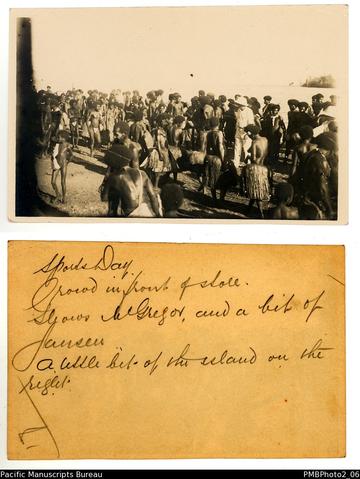 Sports Day
Crowd in front of store.
Shows McGregor, and a bit of
Jansen
A little bit of the island on the
right.
Pacific Manuscripts Bureau
PMBPhoto2_06